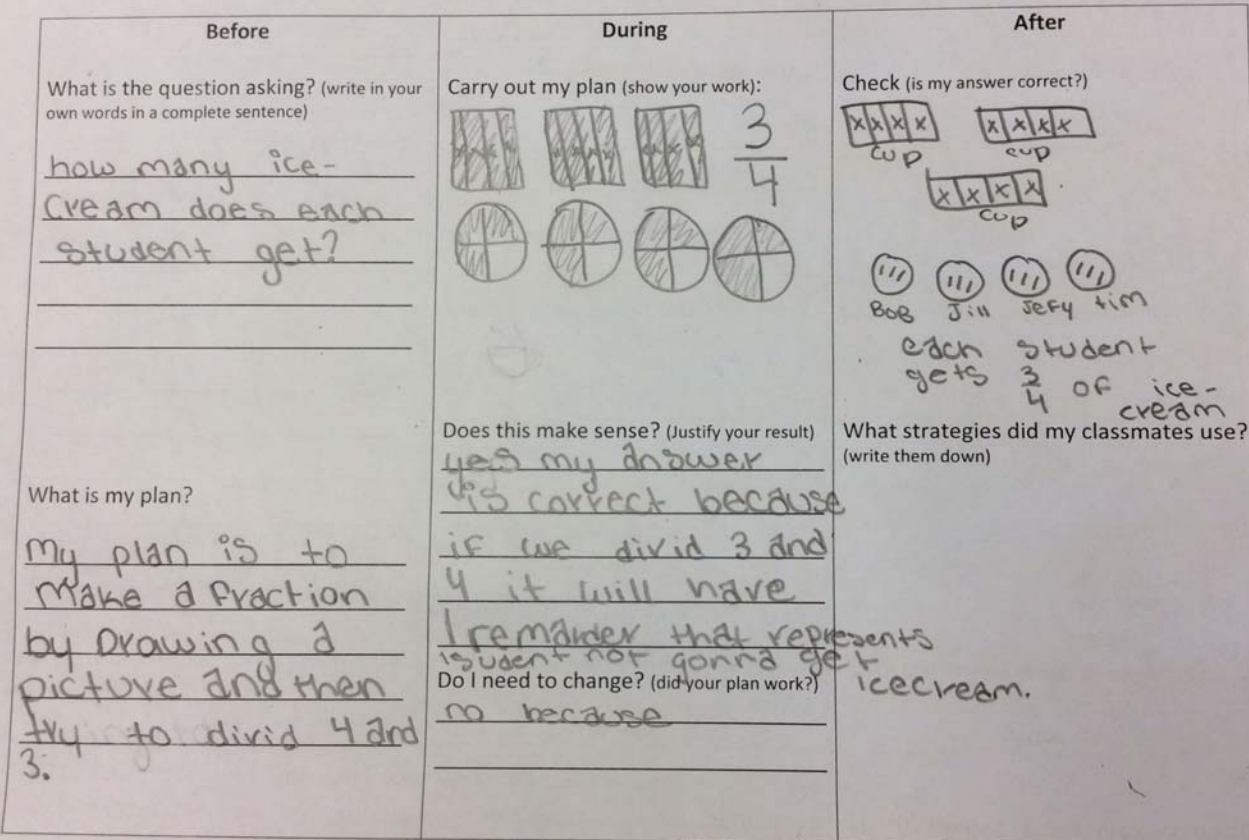 Before
What is the question asking? (write in your
own words in a complete sentence)
how many ice-
Cream does each
student get?
What is my plan?
My plan is to
Make a fraction
by Drawing a
picture and then
try to divid 4 and
3.
During
Carry out my plan (show your work):
3
4
Does this make sense? (Justify your result)
yes my answer
is correct because
if we divid 3 and
4 it will have
1 remarder that represents
1 sudent not gonna get
icecream.
Do I need to change? (did your plan work?)
no because
After
Check (is my answer correct?)
x x x x x x x x
cup cup
x x x x
cup
Bob Jill Jefy tim
each student
gets 3/4 of ice-
cream
What strategies did my classmates use?
(write them down)